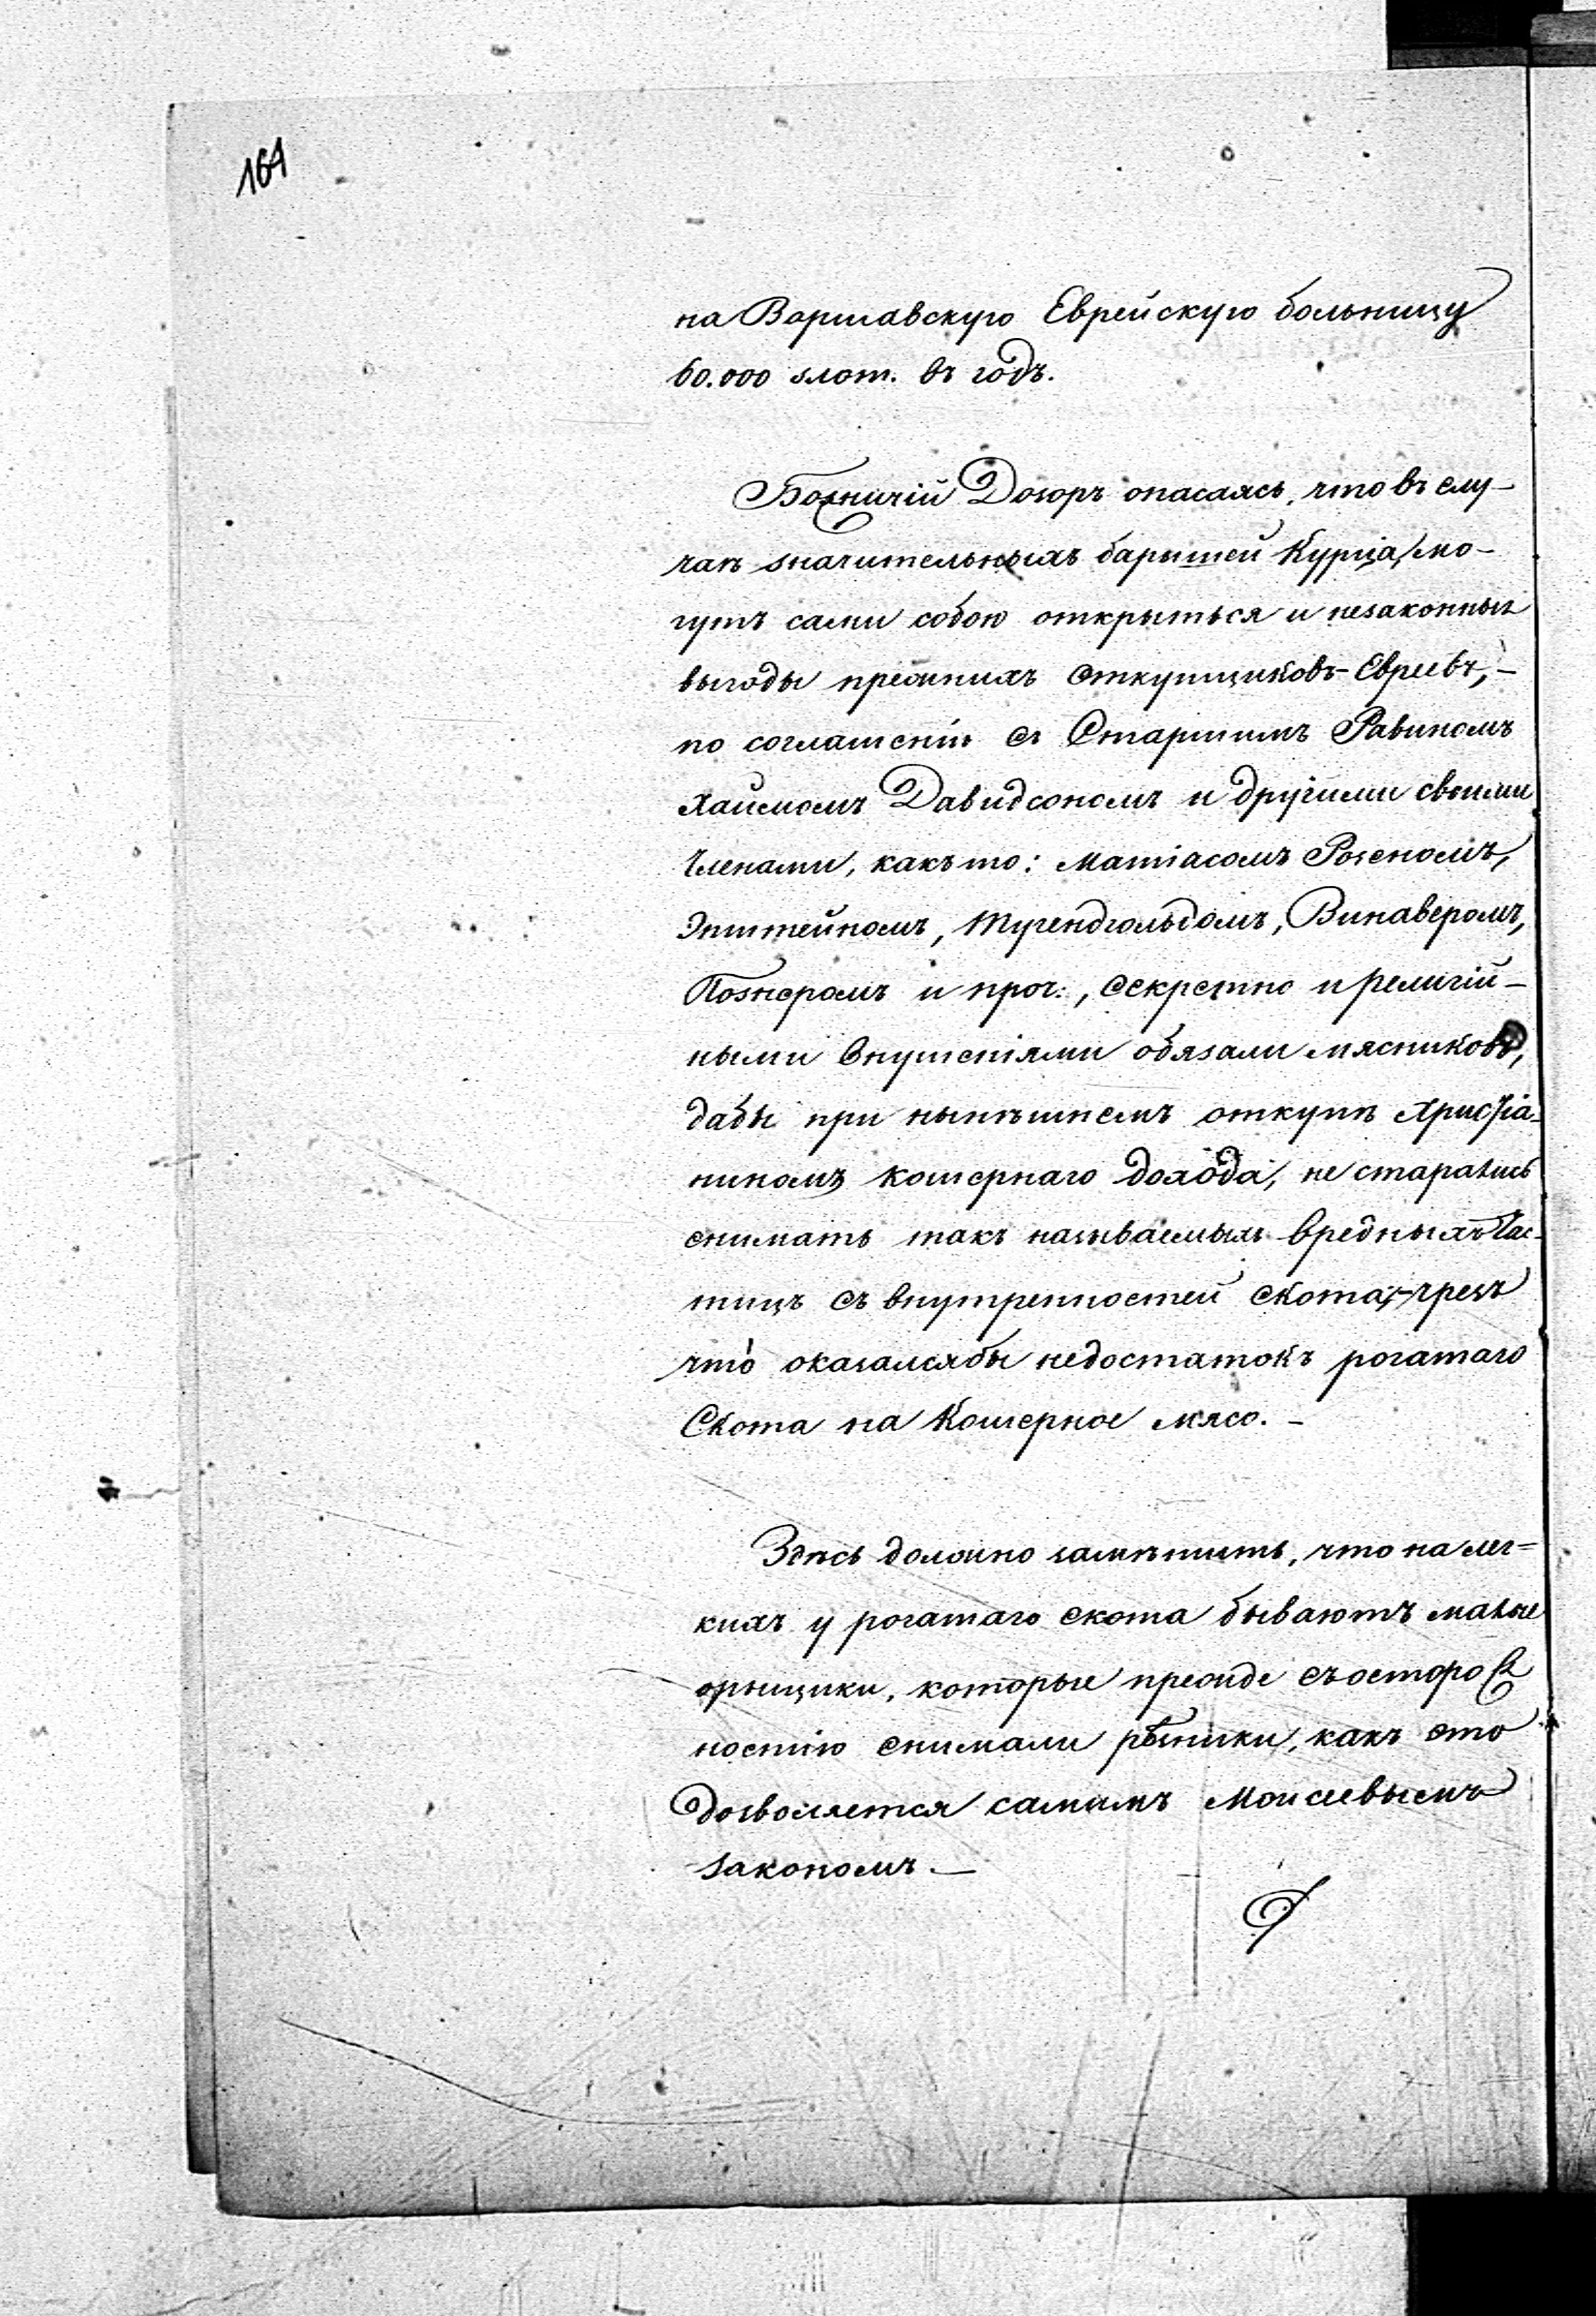 164
на Варшавскую Еврейскую больницу
60.000 злот. въ годъ.
Божничій Дозоръ опасаясь, что въ слу-
чаѣ значительныхъ барышей Курца, мо-
гутъ сами собою открыться и незаконныя
выгоды прежнихъ Откупщиковъ-Евреевъ, -
по соглашенію съ Старшимъ Равиномъ
Хаимомъ Давидсономъ и другими своими
Членами, какъ то: Матіасомъ Розеномъ,
Эпштейномъ, Тугендгольдомъ, Винаверомъ,
Познеромъ и проч:, секретно и религій-
ными внушеніями обязали мясниковъ,
дабы при нынѣшнемъ откупѣ Христіа-
ниномъ кошернаго дохода, не старались
снимать такъ называемыхъ вредныхъ час-
тицъ съ внутренностей скота, чрезъ
что́ оказался бы недостатокъ рогатаго
Скота на Кошерное мясо. -
Здѣсь должно замѣтить, что на лег=
кихъ у рогатаго скота бываютъ малые
прыщики, которые прежде съ осторож
ностію снимали рѣзники, какъ это
дозволяется самымъ Моисеевымъ
закономъ. —